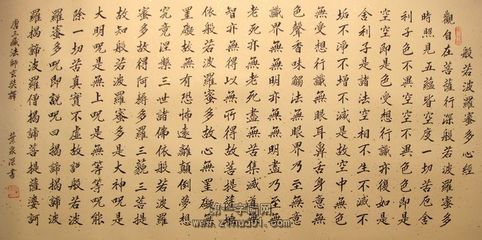 般若波羅蜜多心經
觀自在菩薩行深般若波羅蜜多
時照見五蘊皆空度一切苦厄舍
利子色不異空空不異色色即是
空空即是色受想行識亦復如是
舍利子是諸法空相不生不滅不
垢不淨不增不減是故空中無色
無受想行識無眼耳鼻舌身意無
色聲香味觸法無眼界乃至無意
識界無無明亦無無明盡乃至無
老死亦無老死盡無苦集滅道無
智亦無得以無所得故菩提薩埵
依般若波羅蜜多故心無罣礙無
罣礙故無有恐怖遠離顛倒夢想
究竟涅槃三世諸佛依般若波羅
蜜多故得阿耨多羅三藐三菩提
故知般若波羅蜜多是大神呪是
大明呪是無上呪是無等等呪能
除一切苦真實不虛故說般若波
羅蜜多呪即說呪曰揭諦揭諦波
羅揭諦波羅僧揭諦菩提薩婆訶
唐三藏法師玄奘譯
書